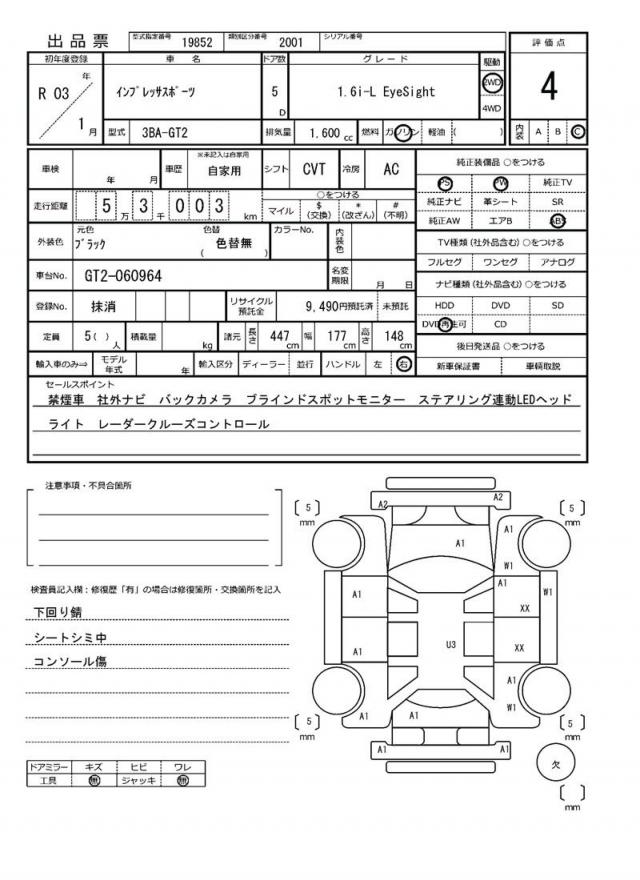 出品票 型式指定番号 19852 類別区分番号 2001 シリアル番号
評価点
4
内装 A B C
初年度登録 車名 ドア数 グレード 駆動
R 03 年 1 月
ｲﾝﾌﾟﾚｯｻｽﾎﾟｰﾂ 5 D 1.6i-L EyeSight 2WD
4WD
型式 3BA-GT2 排気量 1,600 cc 燃料 ガソリン 軽油 ( )
車検 年 月 車歴 ※未記入は自家用 自家用 シフト CVT 冷房 AC
走行距離 5 万 3 千 0 0 3 km ○をつける
マイル $(交換) *(改ざん) #(不明)
外装色 元色 ﾌﾞﾗｯｸ 色替 ( 色替無 ) カラーNo. 内装色
車台No. GT2-060964 名変期限 月 日
登録No. 抹消 リサイクル預託金 9,490円預託済 未預託
定員 5( ) 人 積載量 kg 諸元 長さ 447 cm 幅 177 cm 高さ 148 cm
輸入車のみ⇨ モデル年式 年 輸入区分 ディーラー 並行 ハンドル 左 右
純正装備品 ○をつける
PS PW 純正TV
純正ナビ 革シート SR
純正AW エアB ABS
TV種類 (社外品含む) ○をつける
フルセグ ワンセグ アナログ
ナビ種類 (社外品含む) ○をつける
HDD DVD SD
DVD再生可 CD
後日発送品 ○をつける
新車保証書 車輌取説
セールスポイント
禁煙車 社外ナビ バックカメラ ブラインドスポットモニター ステアリング連動LEDヘッド
ライト レーダークルーズコントロール
注意事項・不具合箇所
検査員記入欄：修復歴「有」の場合は修復箇所・交換箇所を記入
下回り錆
シートシミ中
コンソール傷
ドアミラー キズ ヒビ ワレ
工具 無 ジャッキ 無
A2 A2
5 mm
5 mm
A1 A1
W1
A1 A1 W1
XX
A1 U3 XX
A1
W1
A1 A1
5 mm
5 mm
A1 A1
欠
mm